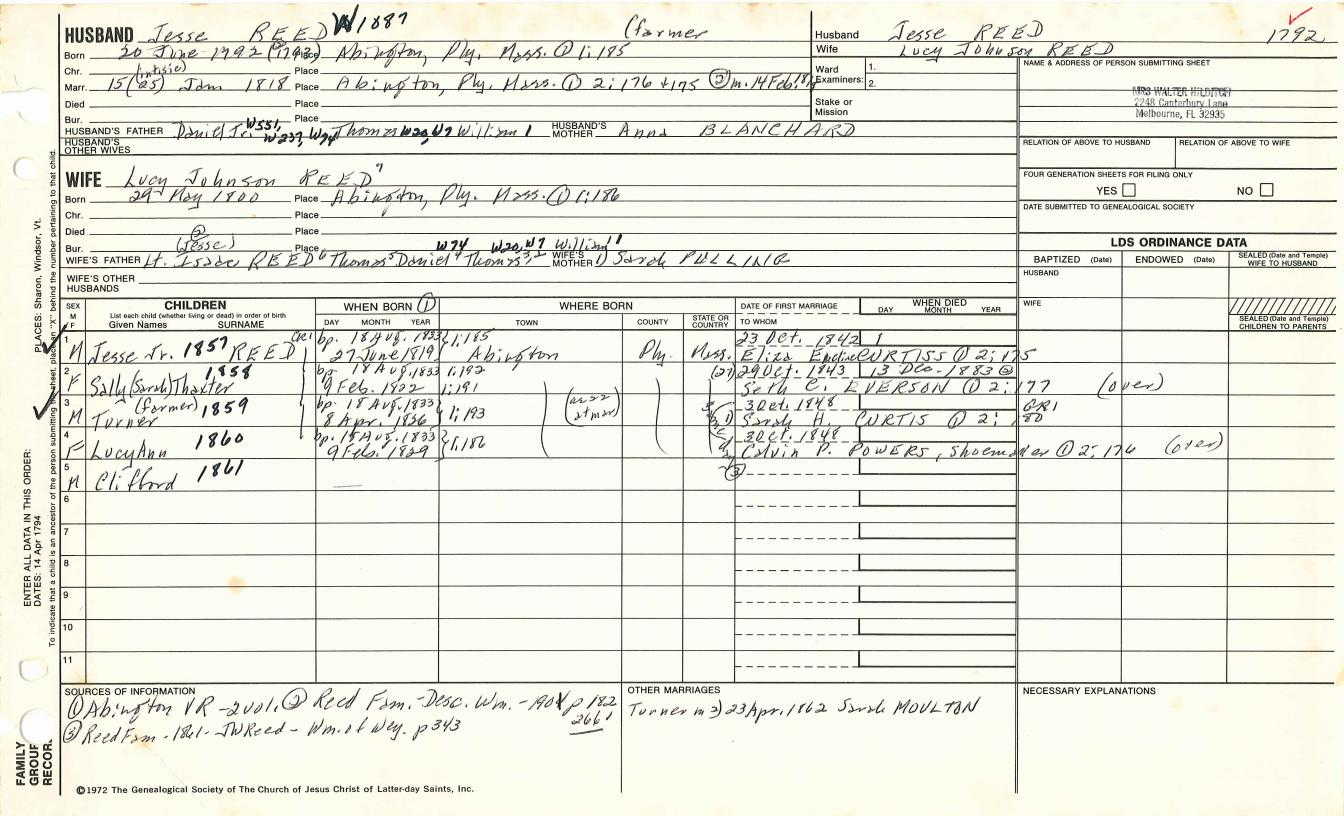 HUSBAND Jesse REED W1887 (farmer
Born 20 June 1792 (1793) Place Abington, Ply. Mass. ① 1:185
Chr. (intis) Place
Marr. 15 (25) Jan 1818 Place Abington, Ply. Mass. ① 2:176 +175 ② m. 14 Feb.
Died Place
Bur. Place
HUSBAND'S FATHER Daniel Jr. W551, W237, W74 Thomas W20, W7 William 1 HUSBAND'S MOTHER Anna BLANCHARD
HUSBAND'S OTHER WIVES
Husband Jesse REED 1792
Wife Lucy Johnson REED
Ward Examiners: 1.
2.
Stake or Mission
NAME & ADDRESS OF PERSON SUBMITTING SHEET
MRS WALTER HILDITCH
2248 Canterbury Lane
Melbourne, FL 32935
RELATION OF ABOVE TO HUSBAND RELATION OF ABOVE TO WIFE
FOUR GENERATION SHEETS FOR FILING ONLY
YES NO
DATE SUBMITTED TO GENEALOGICAL SOCIETY
WIFE Lucy Johnson REED 7
Born 29 May 1800 Place Abington, Ply. Mass. ① 1:186
Chr. Place
Died ② Place
Bur. (Jesse) Place W74 W20, W7 William 1
WIFE'S FATHER Lt. Isaac REED 6 Thomas 5 Daniel 4 Thomas 3, 2 WIFE'S MOTHER Sarah PULLING
WIFE'S OTHER HUSBANDS
LDS ORDINANCE DATA
BAPTIZED (Date) ENDOWED (Date) SEALED (Date and Temple) WIFE TO HUSBAND
HUSBAND
WIFE
SEALED (Date and Temple) CHILDREN TO PARENTS
SEX M F
CHILDREN
List each child (whether living or dead) in order of birth
Given Names SURNAME
WHEN BORN ①
DAY MONTH YEAR
WHERE BORN
TOWN COUNTY STATE OR COUNTRY
DATE OF FIRST MARRIAGE
TO WHOM
WHEN DIED
DAY MONTH YEAR
1 bp. 18 Aug. 1833 1:185 23 Oct. 1842
M Jesse Jr. 1857 REED 27 June 1819 Abington Ply. Mass. Eliza CURTISS ① 2:175
2 1858 bp. 18 Aug. 1833 1:192 29 Oct. 1843 13 Dec. 1883 ②
F Sally (Sarah) Thaxter 9 Feb. 1822 1:191 Seth C. EVERSON ① 2:177 (over)
3 (farmer) 1859 bp. 18 Aug. 1833 1:193 3 Oct. 1848 GR1
M Turner 8 Apr. 1826 Sarah H. CURTIS ① 2:180
4 1860 bp. 18 Aug. 1833 1:186 3 Oct. 1848
F Lucy Ann 9 Feb. 1829 Calvin P. POWERS, Shoemaker ① 2:176 (over)
5 1861 ③
M Clifford
6
7
8
9
10
11
SOURCES OF INFORMATION
① Abington VR - 2 vol. ② Reed Fam. - Desc. Wm. - 1901 p 182
266
③ Reed Fam - 1861 - JW Reed - Wm. of Wey. p 343
OTHER MARRIAGES
Turner m 3) 23 Apr. 1862 Sarah MOULTON
NECESSARY EXPLANATIONS
©1972 The Genealogical Society of The Church of Jesus Christ of Latter-day Saints, Inc.
FAMILY GROUP RECOR
ENTER ALL DATA IN THIS ORDER:
DATES: 14 Apr 1794
PLACES: Sharon, Windsor, Vt.
To indicate that a child is an ancestor of the person submitting the sheet, place an "X" behind the number pertaining to that child.